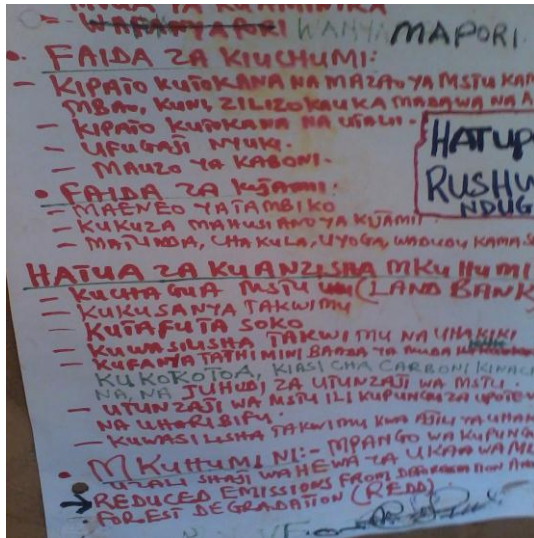 MUDA YA KUAMINIKA
WAFANYAPORI WANYA MAPORI.
• FAIDA ZA KIUCHUMI:
– KIPATO KUTOKANA NA MAZAO YA MSTU KAM
MBAO, KUNI, ZILIZOKAUKA MADAWA NA A
– KIPATO KUTOKANA NA UTALII.
– UFUGAJI NYUKI.
– MAUZO YA KABONI.
HATUP
RUSHW
NDUG
• FAIDA ZA KIJAMII:
– MAENEO YA TAMBIKO
– KUKUZA MAHUSIANO YA KIJAMII
– MATUNDA, CHAKULA, UYOGA, WADUDU KAMA S
HATUA ZA KUANZISHA MKUHUMI
– KUCHAGUA MSTU (LAND BANK
– KUKUSANYA TAKWIMU
– KUTAFUTA SOKO
– KUWASILISHA TAKWIMU NA UHAKIKI
– KUFANYA TATHIMINI BAADA YA MUDA
KUKOKOTOA, KIASI CHA CARBONI KINACH
NA, NA JUHUDI ZA UTUNZAJI WA MSTU.
– UTUNZAJI WA MSTU ILI KUPUNGUZA UPOTEV
NA UHARIBIFU.
– KUWASILISHA TAKWIMU KWA AJILI YA UHAK
• MKUHUMI NI:- MPANGO WA KUPUNG
UZALISHAJI WA HEWA YA UKAA WA MI
→ REDUCED EMISSIONS FROM DEFORESTATION AND
FOREST DEGRADATION (REDD)